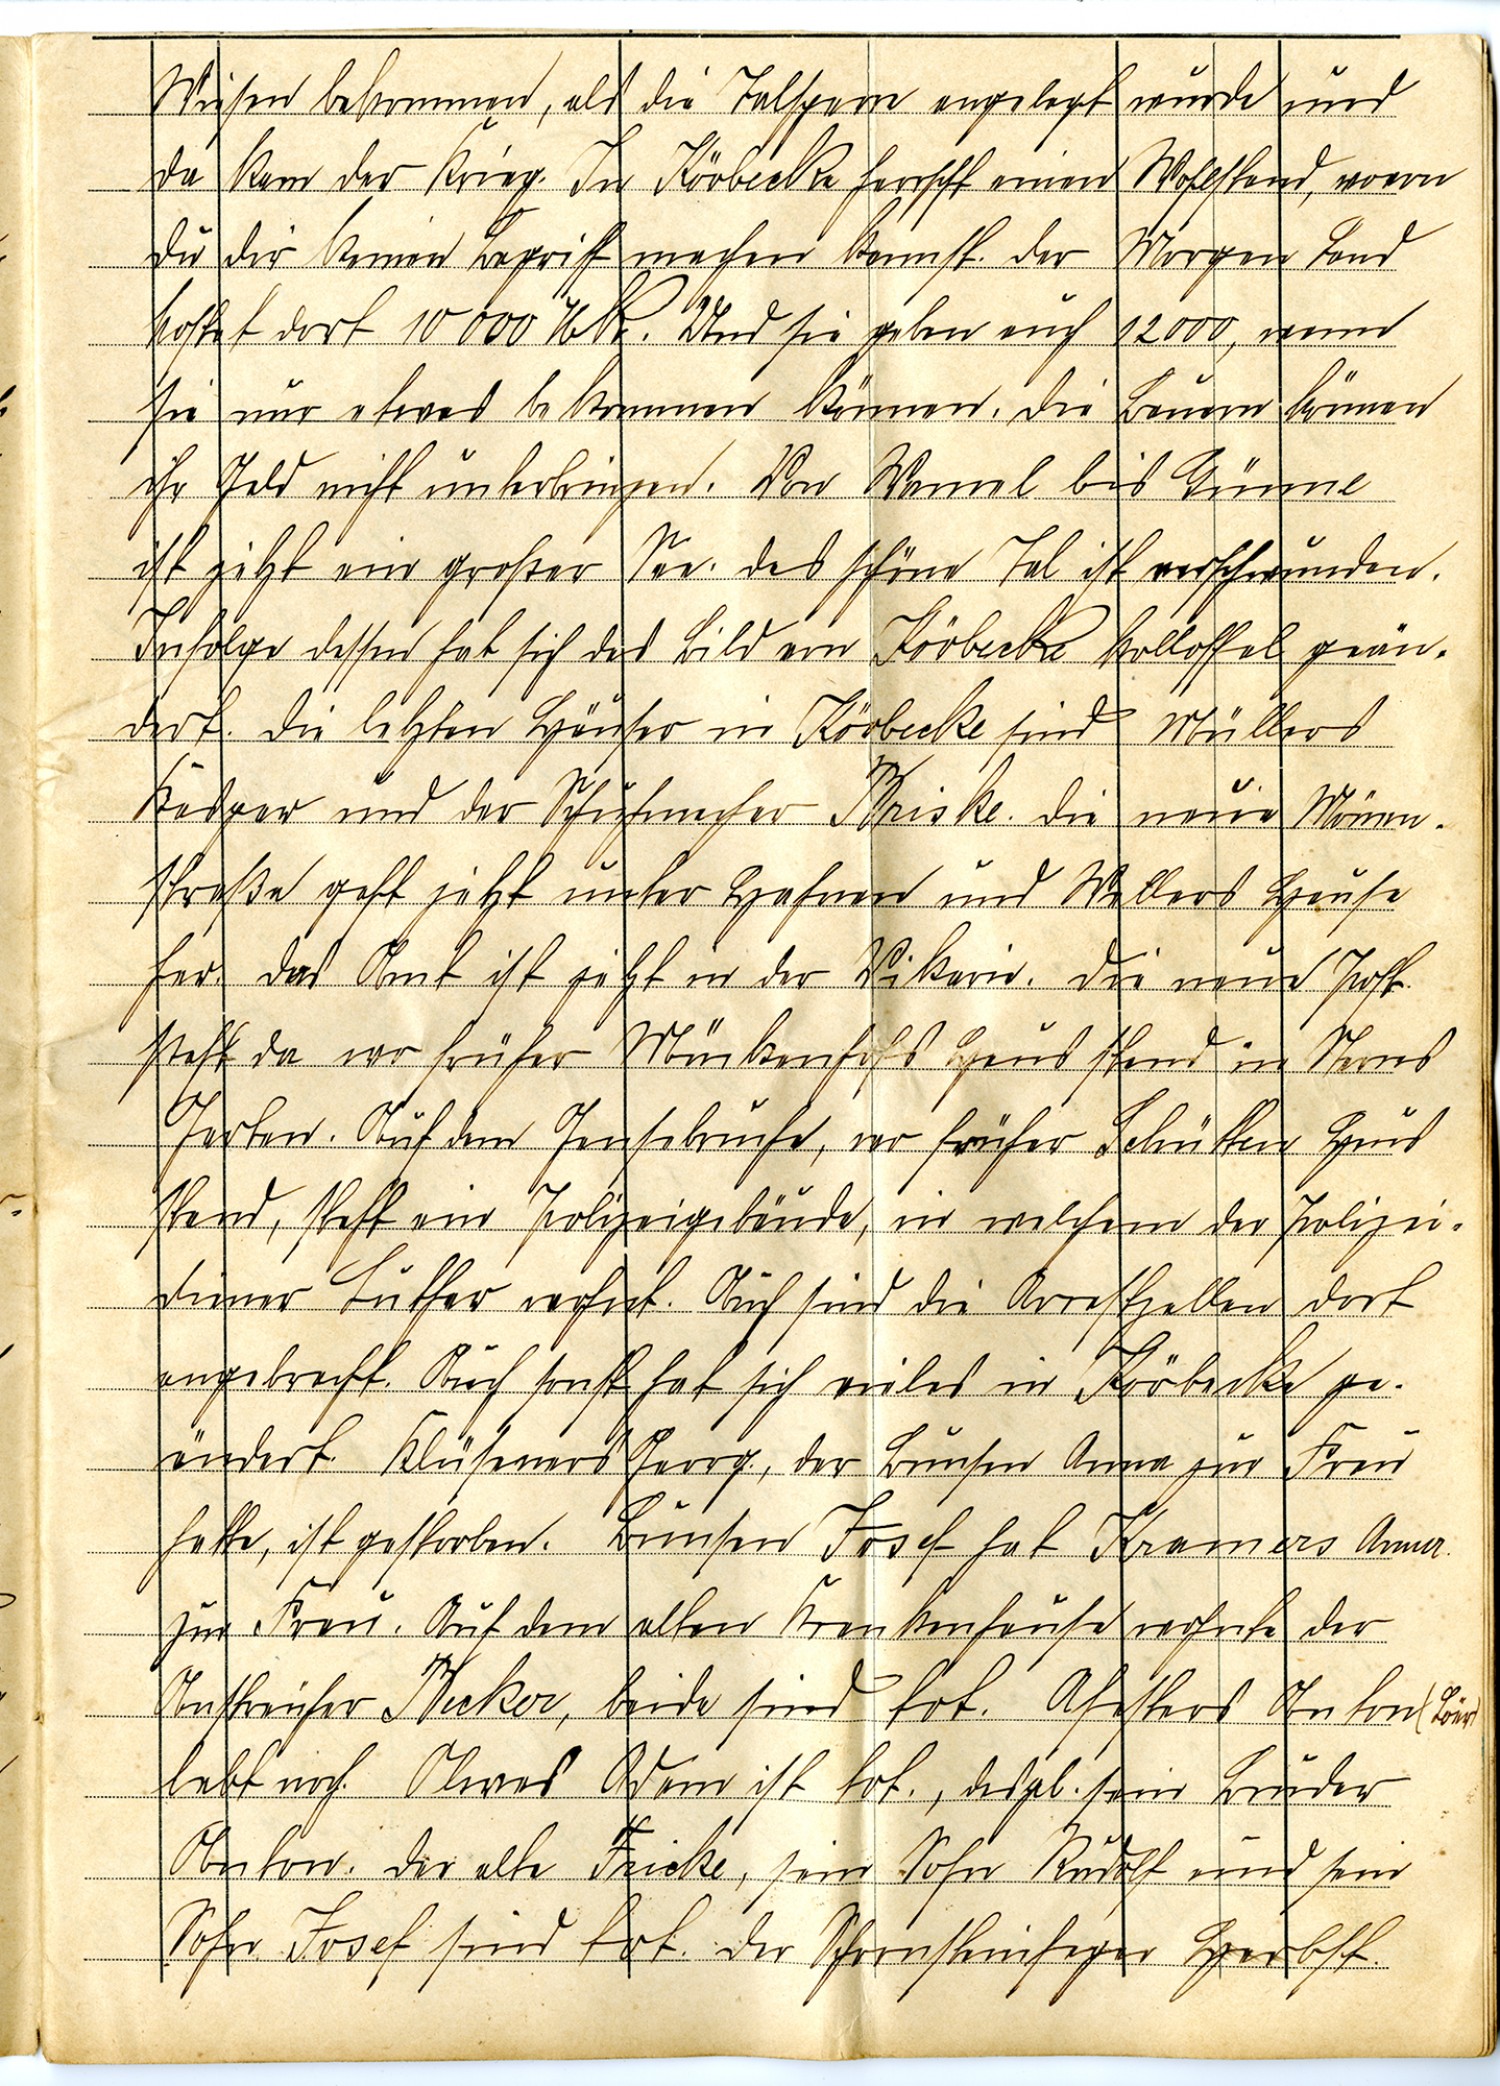 Wiesen bekommen, als die Talsperre angelegt wurde und
da kam der Krieg. In Körbecke herrscht einen Wohlstand, wovon
du dir keinen Begriff machen kannst. Der Morgen Land
kostet dort 10000 Mk. Und sie geben auch 12000, wenn
sie nur etwas bekommen können. Die Bauern können
ihr Geld nicht unterbringen. Von Wamel bis Günne
ist jetzt ein großer See. Das schöne Tal ist verschwunden.
Infolge dessen hat sich das Bild von Körbecke kollossal geän-
dert. Die letzten Häuser in Körbecke sind Müllers
Kasper und der Schuhmacher Briske. Die neue Mönen-
straße geht jetzt unter Hafnen und Wellers Hause
her. Das Amt ist jetzt in der Vikarie. Die neue Post
steht da wo früher Münkenhofs Haus stand in Sterns
Garten. Auf dem Gansebruche, wo früher Schütten Haus
stand, steht ein Polizeigebäude, in welchem der Polizei-
diener Luther wohnt. Auch sind die Arrestzellen dort
angebracht. Auch sonst hat sich vieles in Körbecke ge-
ändert. Klüseners Georg, der Bunsen Anna zur Frau
hatte, ist gestorben. Bunsen Josef hat Kramers Anna
zur Frau. Auf dem alten Krankenhause wohnte der
Anstreicher Becker, beide sind tot. Anton
lebt noch. Adam ist tot., desgl. sein Bruder
Anton. Der alte Fricke, sein Sohn Rudolf und sein
Sohn Josef sind tot. Der Schornsteinfeger Herbst.